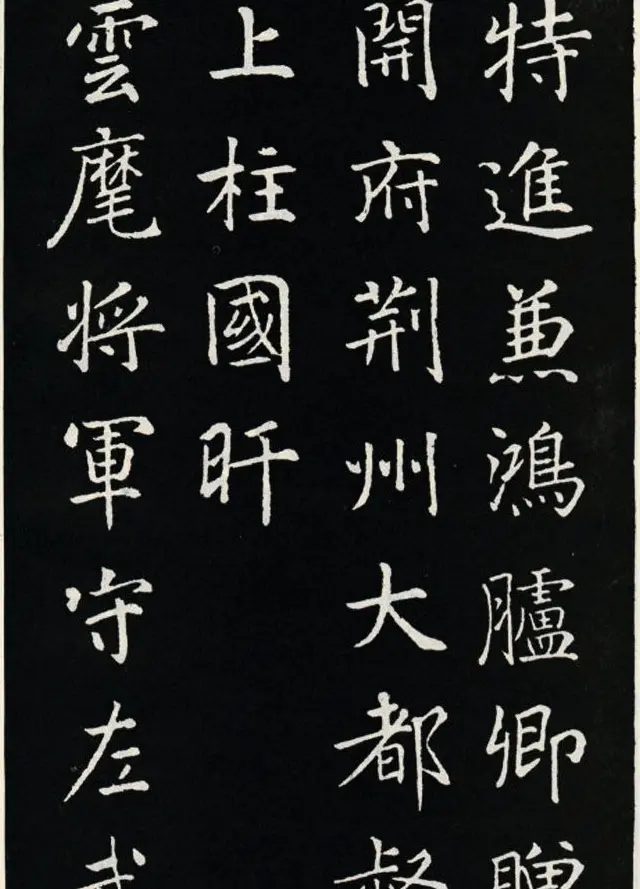 特進兼鴻臚卿贈
開府荊州大都督
上柱國旰
雲麾將軍守左武